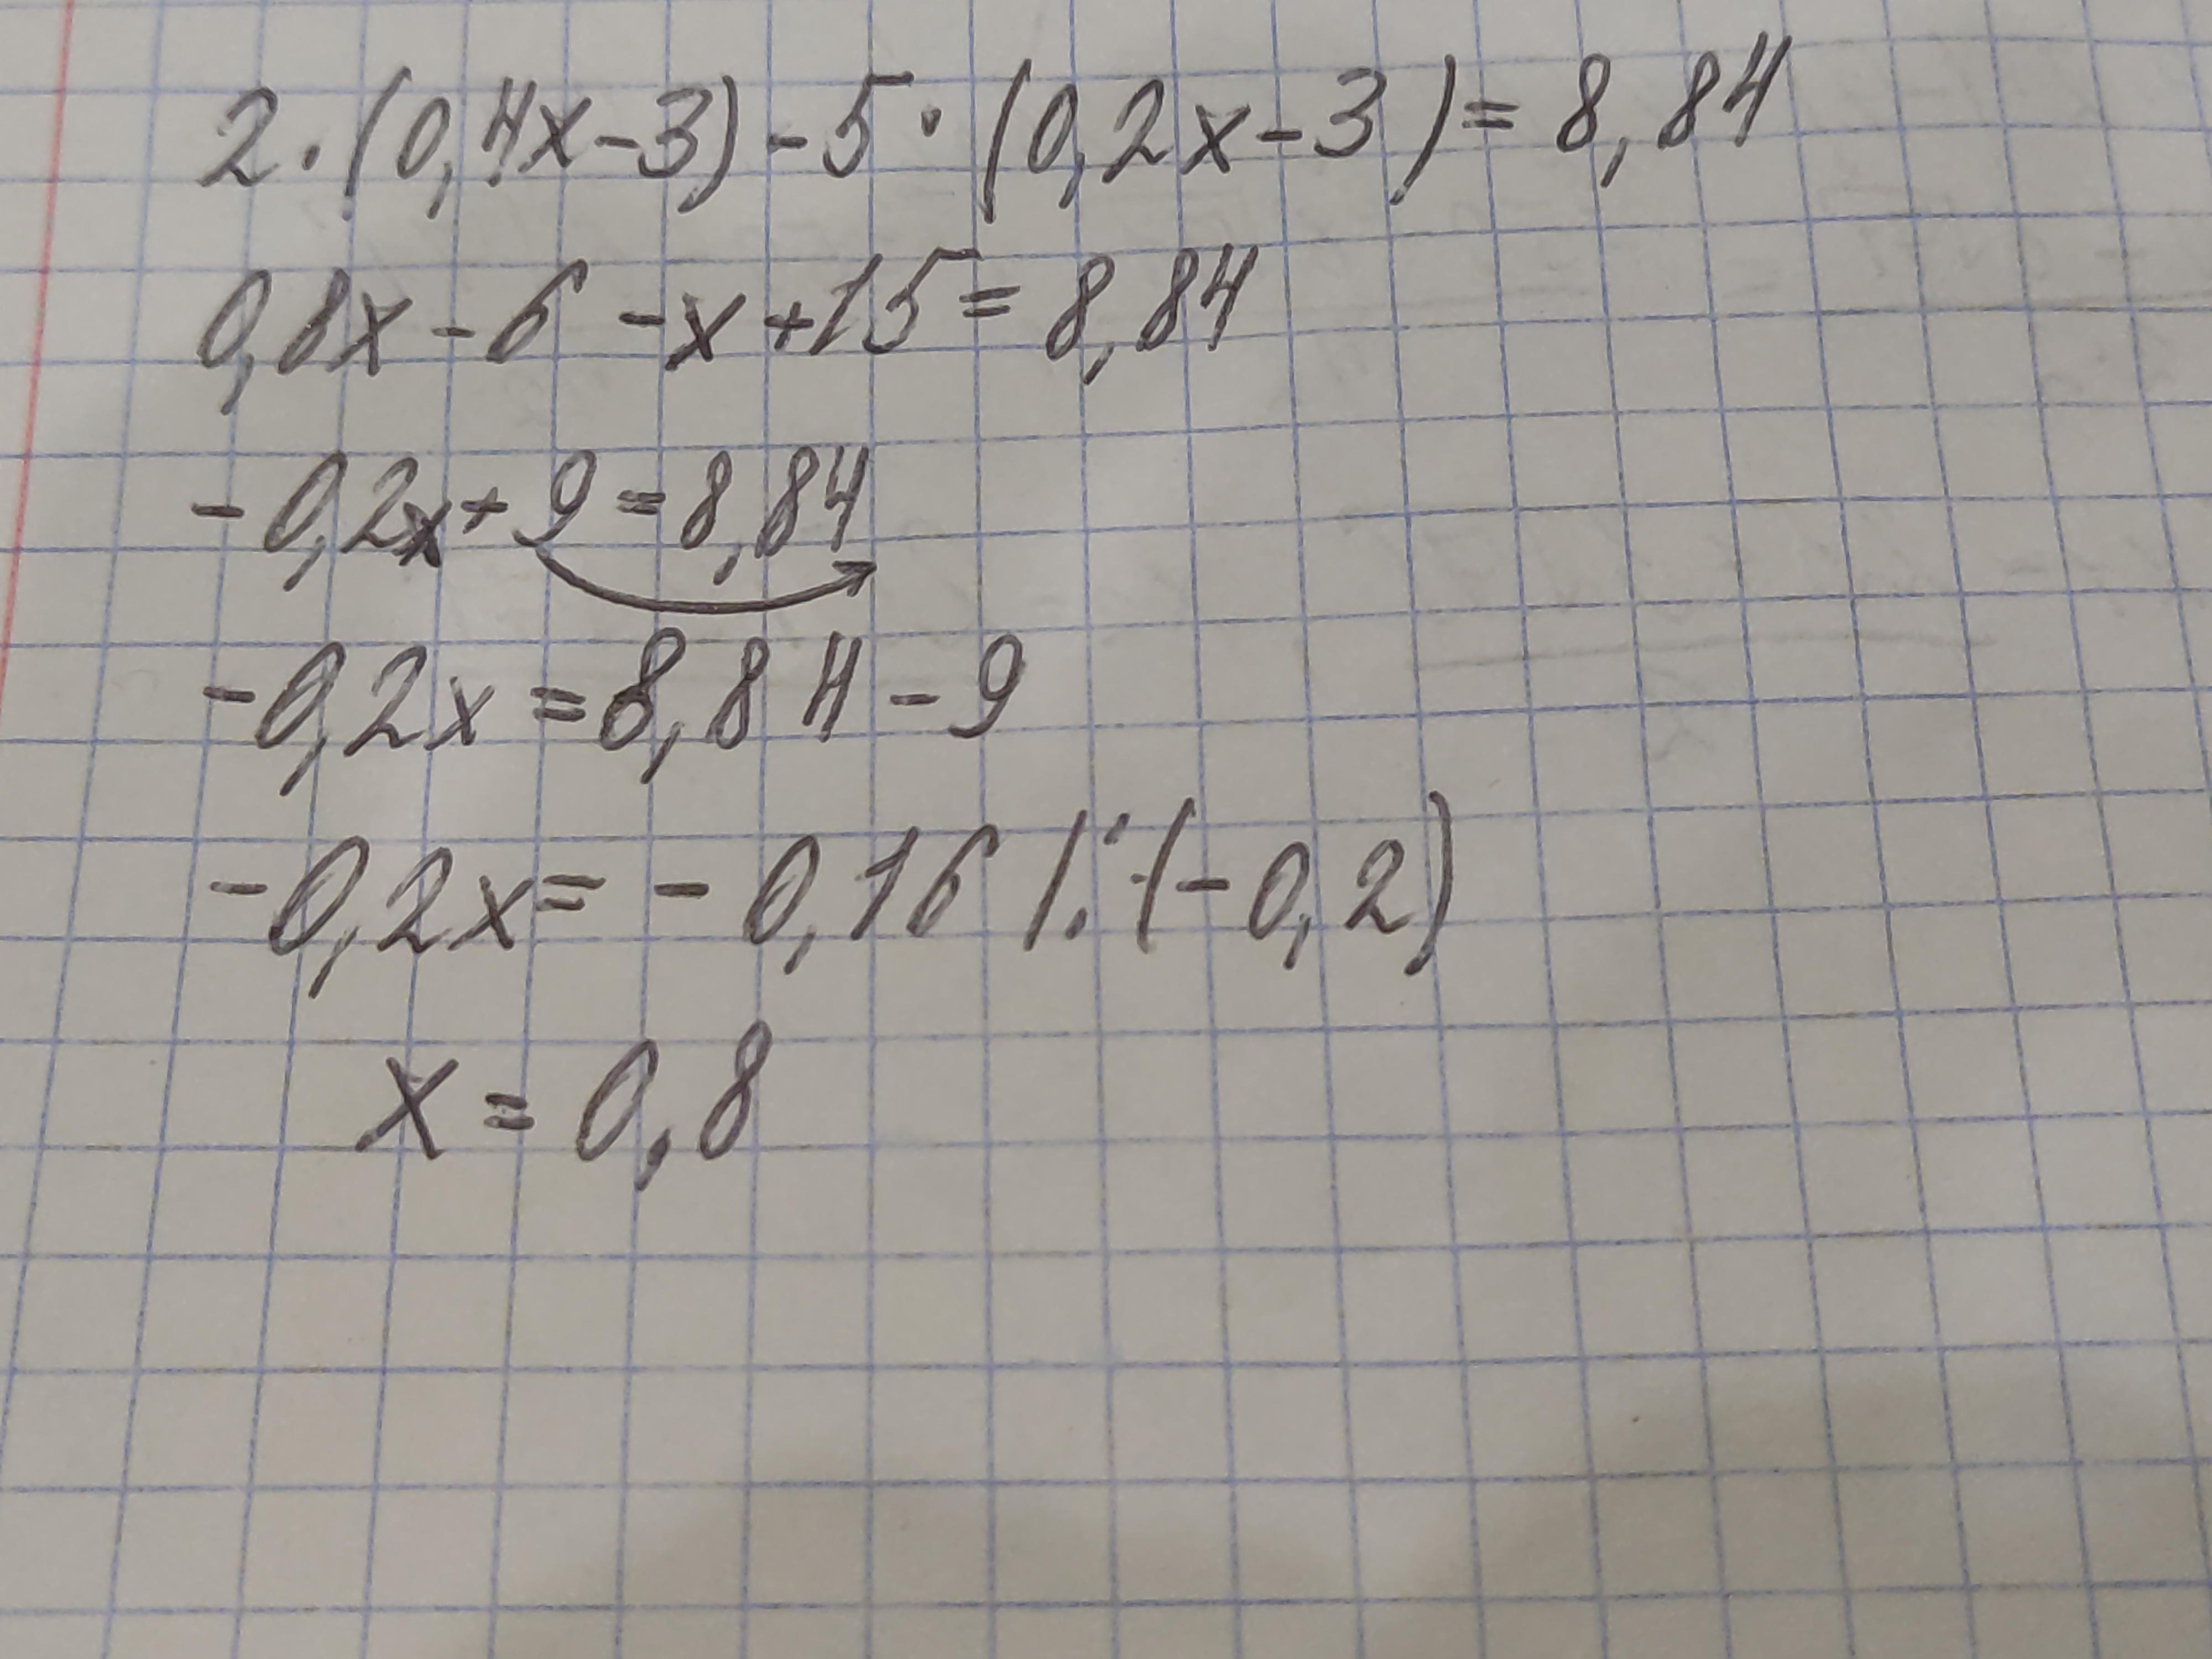 2·(0,4x-3)-5·(0,2x-3)=8,84
0,8x-6-x+15=8,84
-0,2x+9=8,84
-0,2x=8,84-9
-0,2x=-0,16 |:(-0,2)
x=0,8